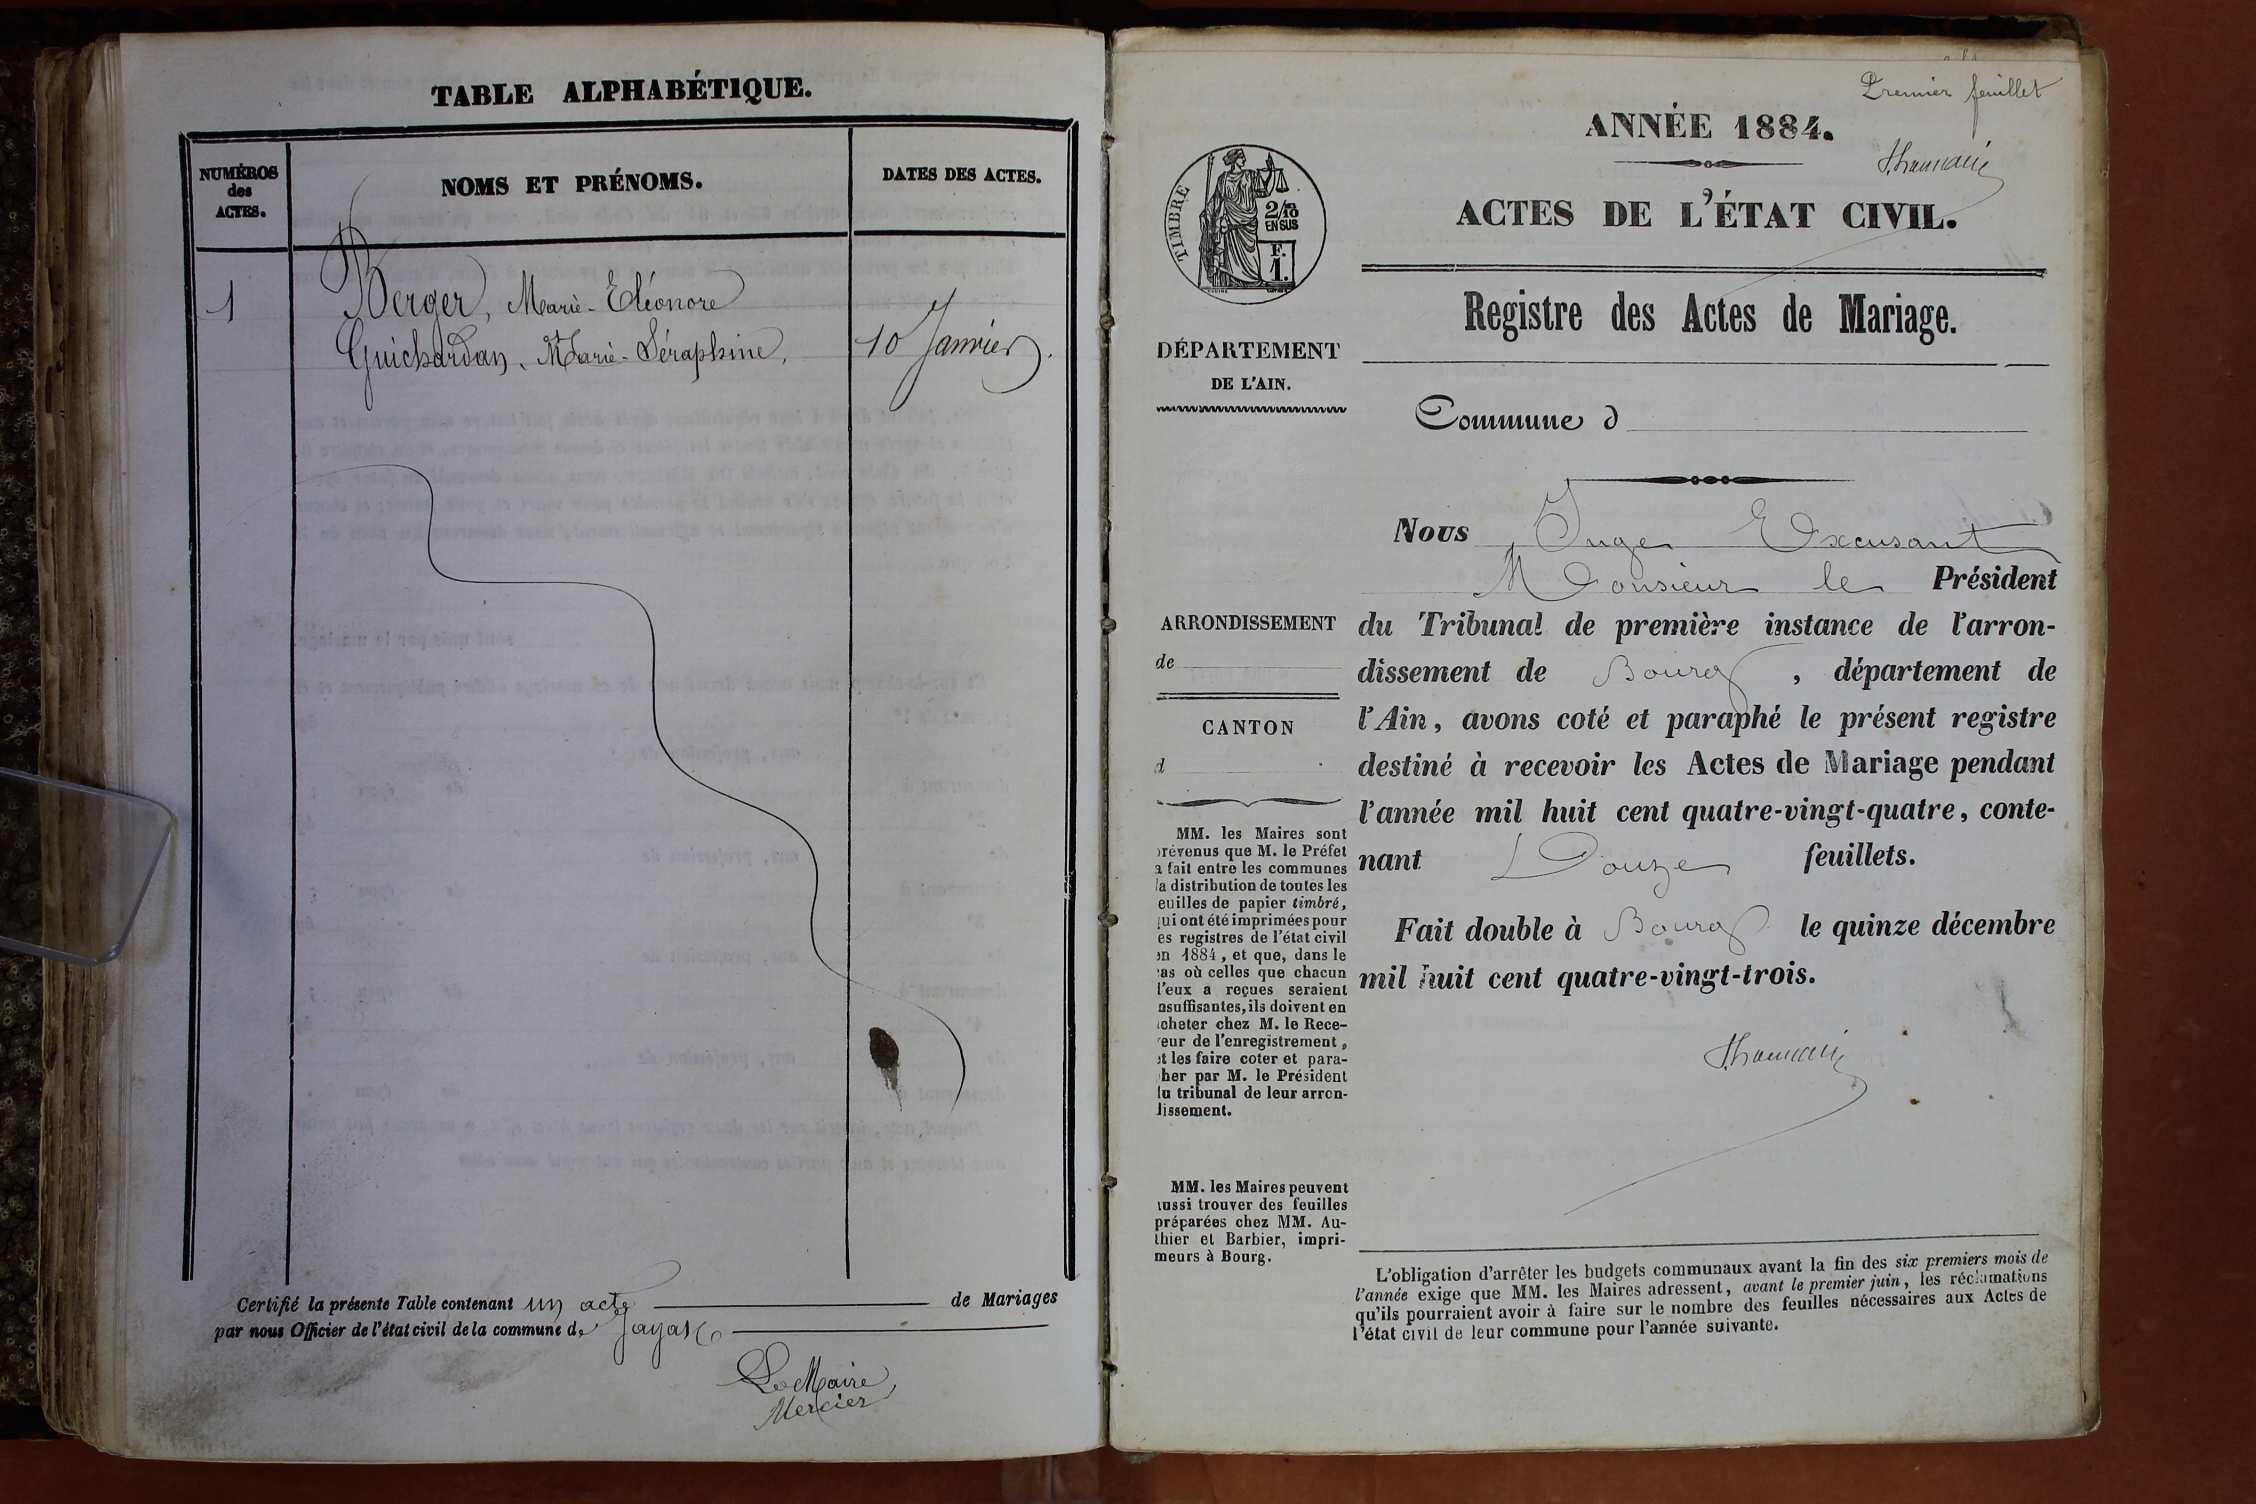 TABLE ALPHABÉTIQUE.
NUMÉROS
des
ACTES.
NOMS ET PRÉNOMS.
DATES DES ACTES.
1
Berger, Marie-Eléonore
Guichardan, Marie-Séraphine,
10 Janvier.
Certifié la présente Table contenant un acte de Mariages
par nous Officier de l'état civil de la commune de Jayat
Le Maire
Mercier
Premier feuillet
ANNÉE 1884.
ACTES DE L'ÉTAT CIVIL.
Registre des Actes de Mariage.
TIMBRE
2/10
EN SUS
F.
1.
DÉPARTEMENT
DE L'AIN.
Commune d
Nous Juge Excusant
Monsieur le Président
du Tribunal de première instance de l'arron-
dissement de Bourg, département de
l'Ain, avons coté et paraphé le présent registre
destiné à recevoir les Actes de Mariage pendant
l'année mil huit cent quatre-vingt-quatre, conte-
nant Douze feuillets.
Fait double à Bourg le quinze décembre
mil huit cent quatre-vingt-trois.
ARRONDISSEMENT
de
CANTON
d
MM. les Maires sont
prévenus que M. le Préfet
a fait entre les communes
la distribution de toutes les
feuilles de papier timbré,
qui ont été imprimées pour
les registres de l'état civil
en 1884, et que, dans le
cas où celles que chacun
d'eux a reçues seraient
insuffisantes, ils doivent en
acheter chez M. le Rece-
veur de l'enregistrement,
et les faire coter et para-
pher par M. le Président
du tribunal de leur arron-
dissement.
MM. les Maires peuvent
aussi trouver des feuilles
préparées chez MM. Au-
thier et Barbier, impri-
meurs à Bourg.
L'obligation d'arrêter les budgets communaux avant la fin des six premiers mois de
l'année exige que MM. les Maires adressent, avant le premier juin, les réclamations
qu'ils pourraient avoir à faire sur le nombre des feuilles nécessaires aux Actes de
l'état civil de leur commune pour l'année suivante.